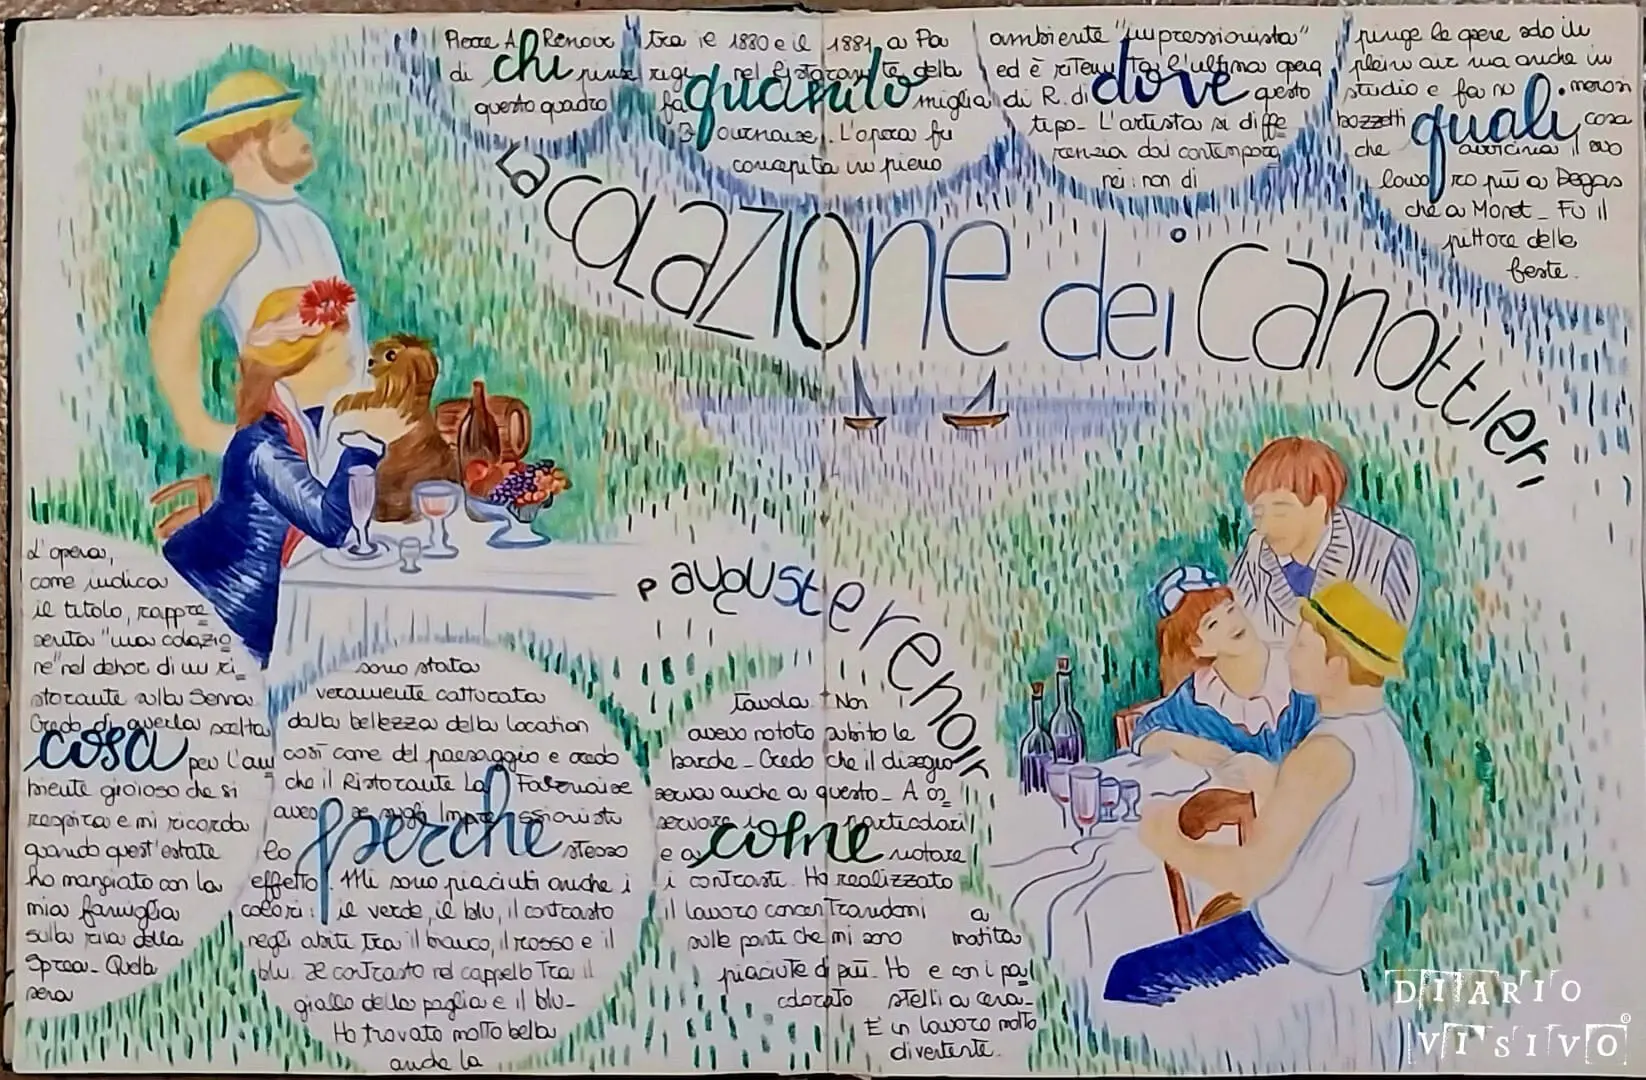 Pierre A. Renoir
di chi
questo quadro
tra il 1880 e il 1881, a Pa
rigi nel Ristorante della
fa quando miglia
Fournaise. L'opera fu
concepita in pieno
ambiente "impressionista"
ed è ritenuta l'ultima opera
di R. di dove questo
tipo - L'artista si diffe
renzia dai contempora
nei: non di
pinge le opere solo in
plein air ma anche in
studio e fa numerosi
bozzetti quali, cosa
che avvicina il suo
lavoro più a Degas
che a Monet - Fu il
pittore delle
feste.
La colazione dei Canottieri
P auguste renoir
L'opera,
come indica
il titolo, rappre
senta "una colazio
ne" nel dehor di un ri
storante sulla Senna.
Credo di averla scelta
cosa per l'am
biente gioioso che si
respira e mi ricorda
quando quest'estate
ho mangiato con la
mia famiglia
sulla riva della
Sprea - Quella
sera
sono stata
veramente catturata
dalla bellezza della location
così come del paesaggio e credo
che il Ristorante La Fournaise
avesse sugli Impressionisti
lo perche stesso
effetto. Mi sono piaciuti anche i
colori: il verde, il blu, il contrasto
negli abiti tra il bianco, il rosso e il
blu. Il contrasto nel cappello tra il
giallo della paglia e il blu-
Ho trovato molto bella
anche la
tavola. Non
avevo notato subito le
barche - Credo che il disegno
serva anche a questo - A os
servare i particolari
e a come notare
i contrasti. Ho realizzato
il lavoro concentrandomi
sulle parti che mi sono
piaciute di più - Ho
colorato
a
matita
e con i pa
stelli a cera-
È un lavoro molto
divertente.
DIARIO
VISIVO®